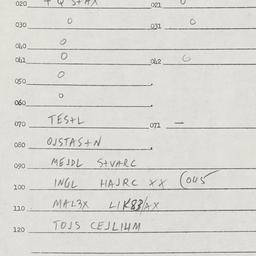 020 + Q S+AX 021 0
030 0 031 0
040 0
041 0 042 0
050 0
060 0
070 TES+L 071 —
080 OJSTAS+N
090 MEJDL S+VARC
100 INGL HAJRC XX (045
110 MAL3X LIK83/AX
120 TOJS CEJLIHM